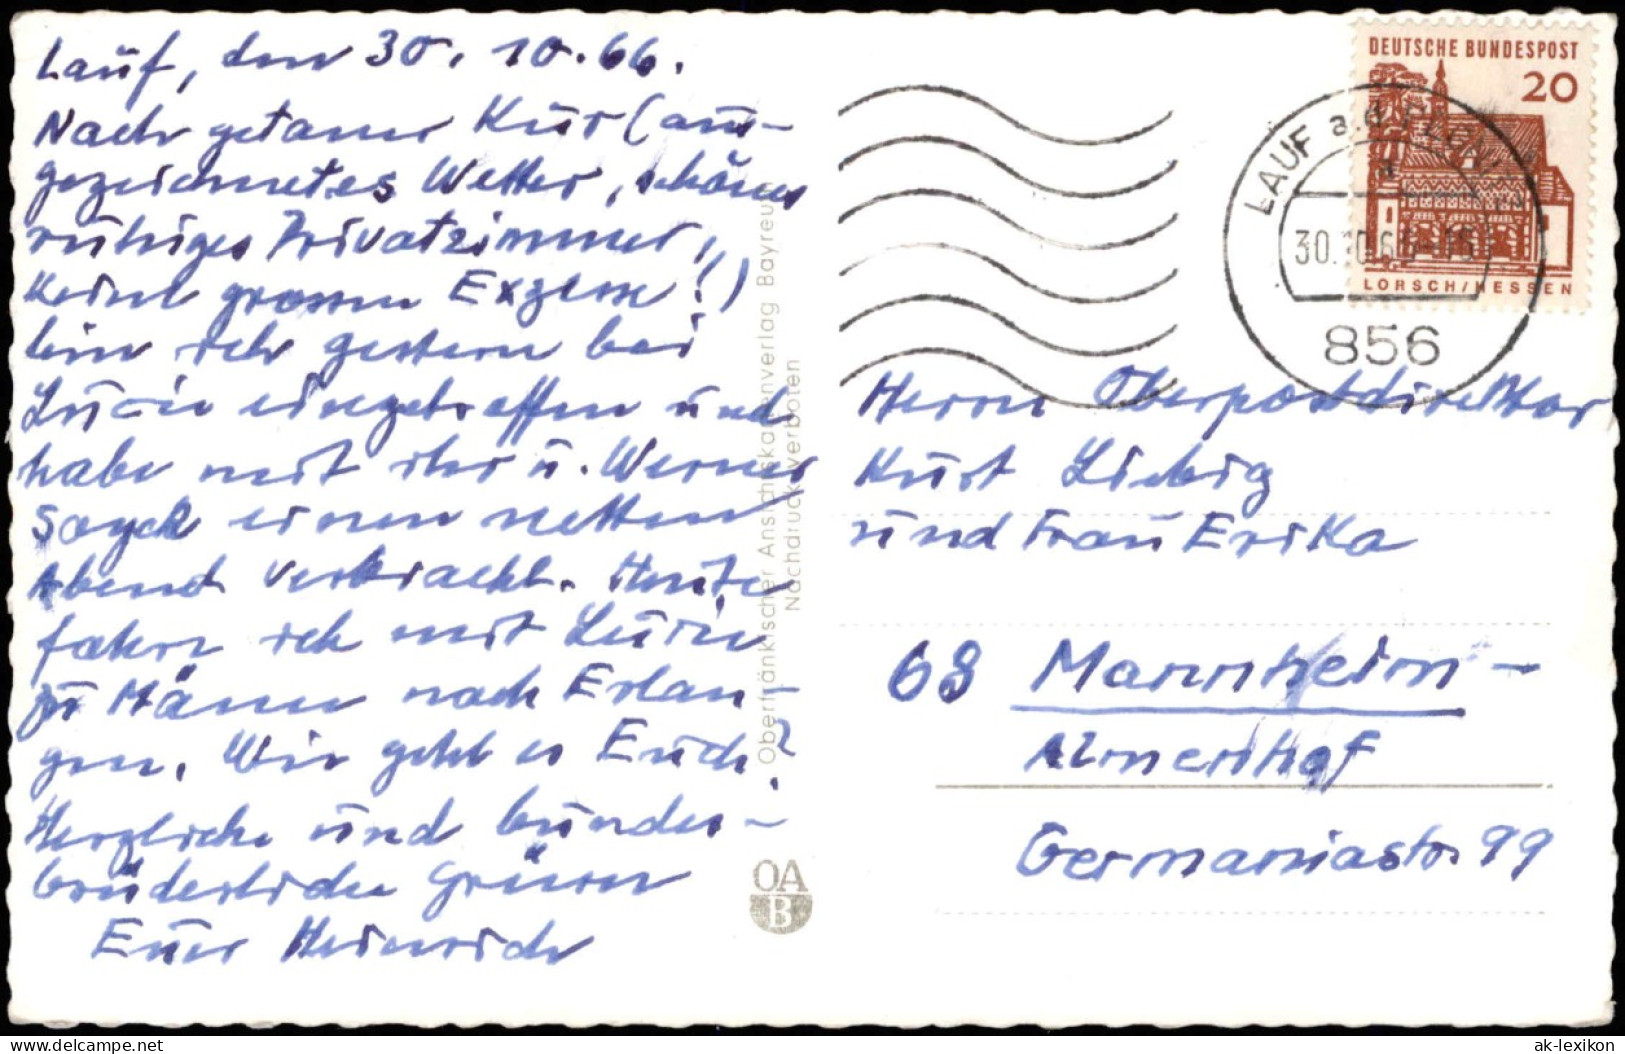 Lauf, den 30. 10. 66.
Nach getaner Kur (aus-
gezeichnetes Wetter, schönes
ruhiges Privatzimmer,
keine grossen Exzesse!)
bin ich gestern bei
Lucie eingetroffen und
habe mit ihr u. Werner
einen netten
Abend verbracht. Heute
fahre ich mit Lucie
zu Männe nach Erlan-
gen. Wie geht es Euch?
Herzliche und bundes-
brüderliche Grüsse
Euer Heinrich
Oberfränkischer Ansichtskartenverlag Bayreuth
Nachdruck verboten
OA
B
DEUTSCHE BUNDESPOST
20
LORSCH/HESSEN
LAUF a.d. PEGNITZ
a
30.10.66-15
856
Herrn Oberpostdirektor
Kurt Liebig
und Frau Erika
68 Mannheim-
Almenhof
Germaniastr. 99
ak-lexikon.com